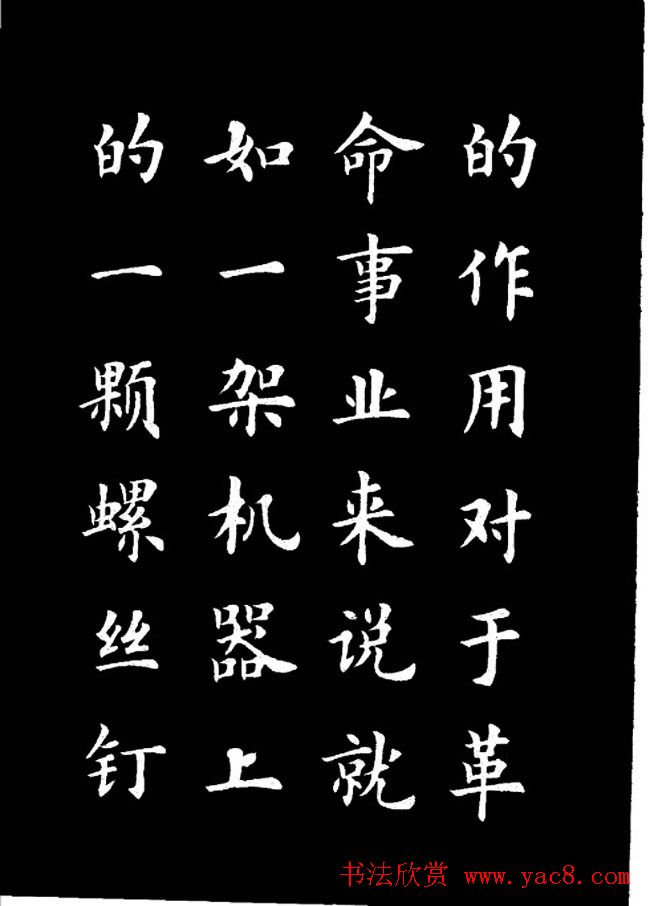 的作用对于革
命事业来说就
如一架机器上
的一颗螺丝钉
书法欣赏 www.yac8.com